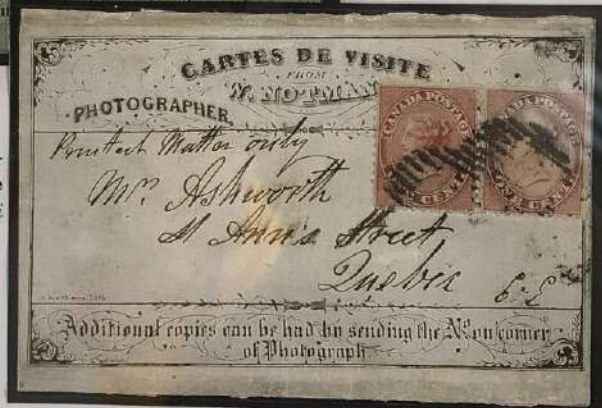 CARTES DE VISITE
FROM
W. NOTMAN
PHOTOGRAPHER,
CANADA POSTAGE
ONE CENT
CANADA POSTAGE
ONE CENT
Printed Matter only
Mrs. Ashworth
St Anne's Street
Quebec
Additional copies can be had by sending the No. on corner
of Photograph.